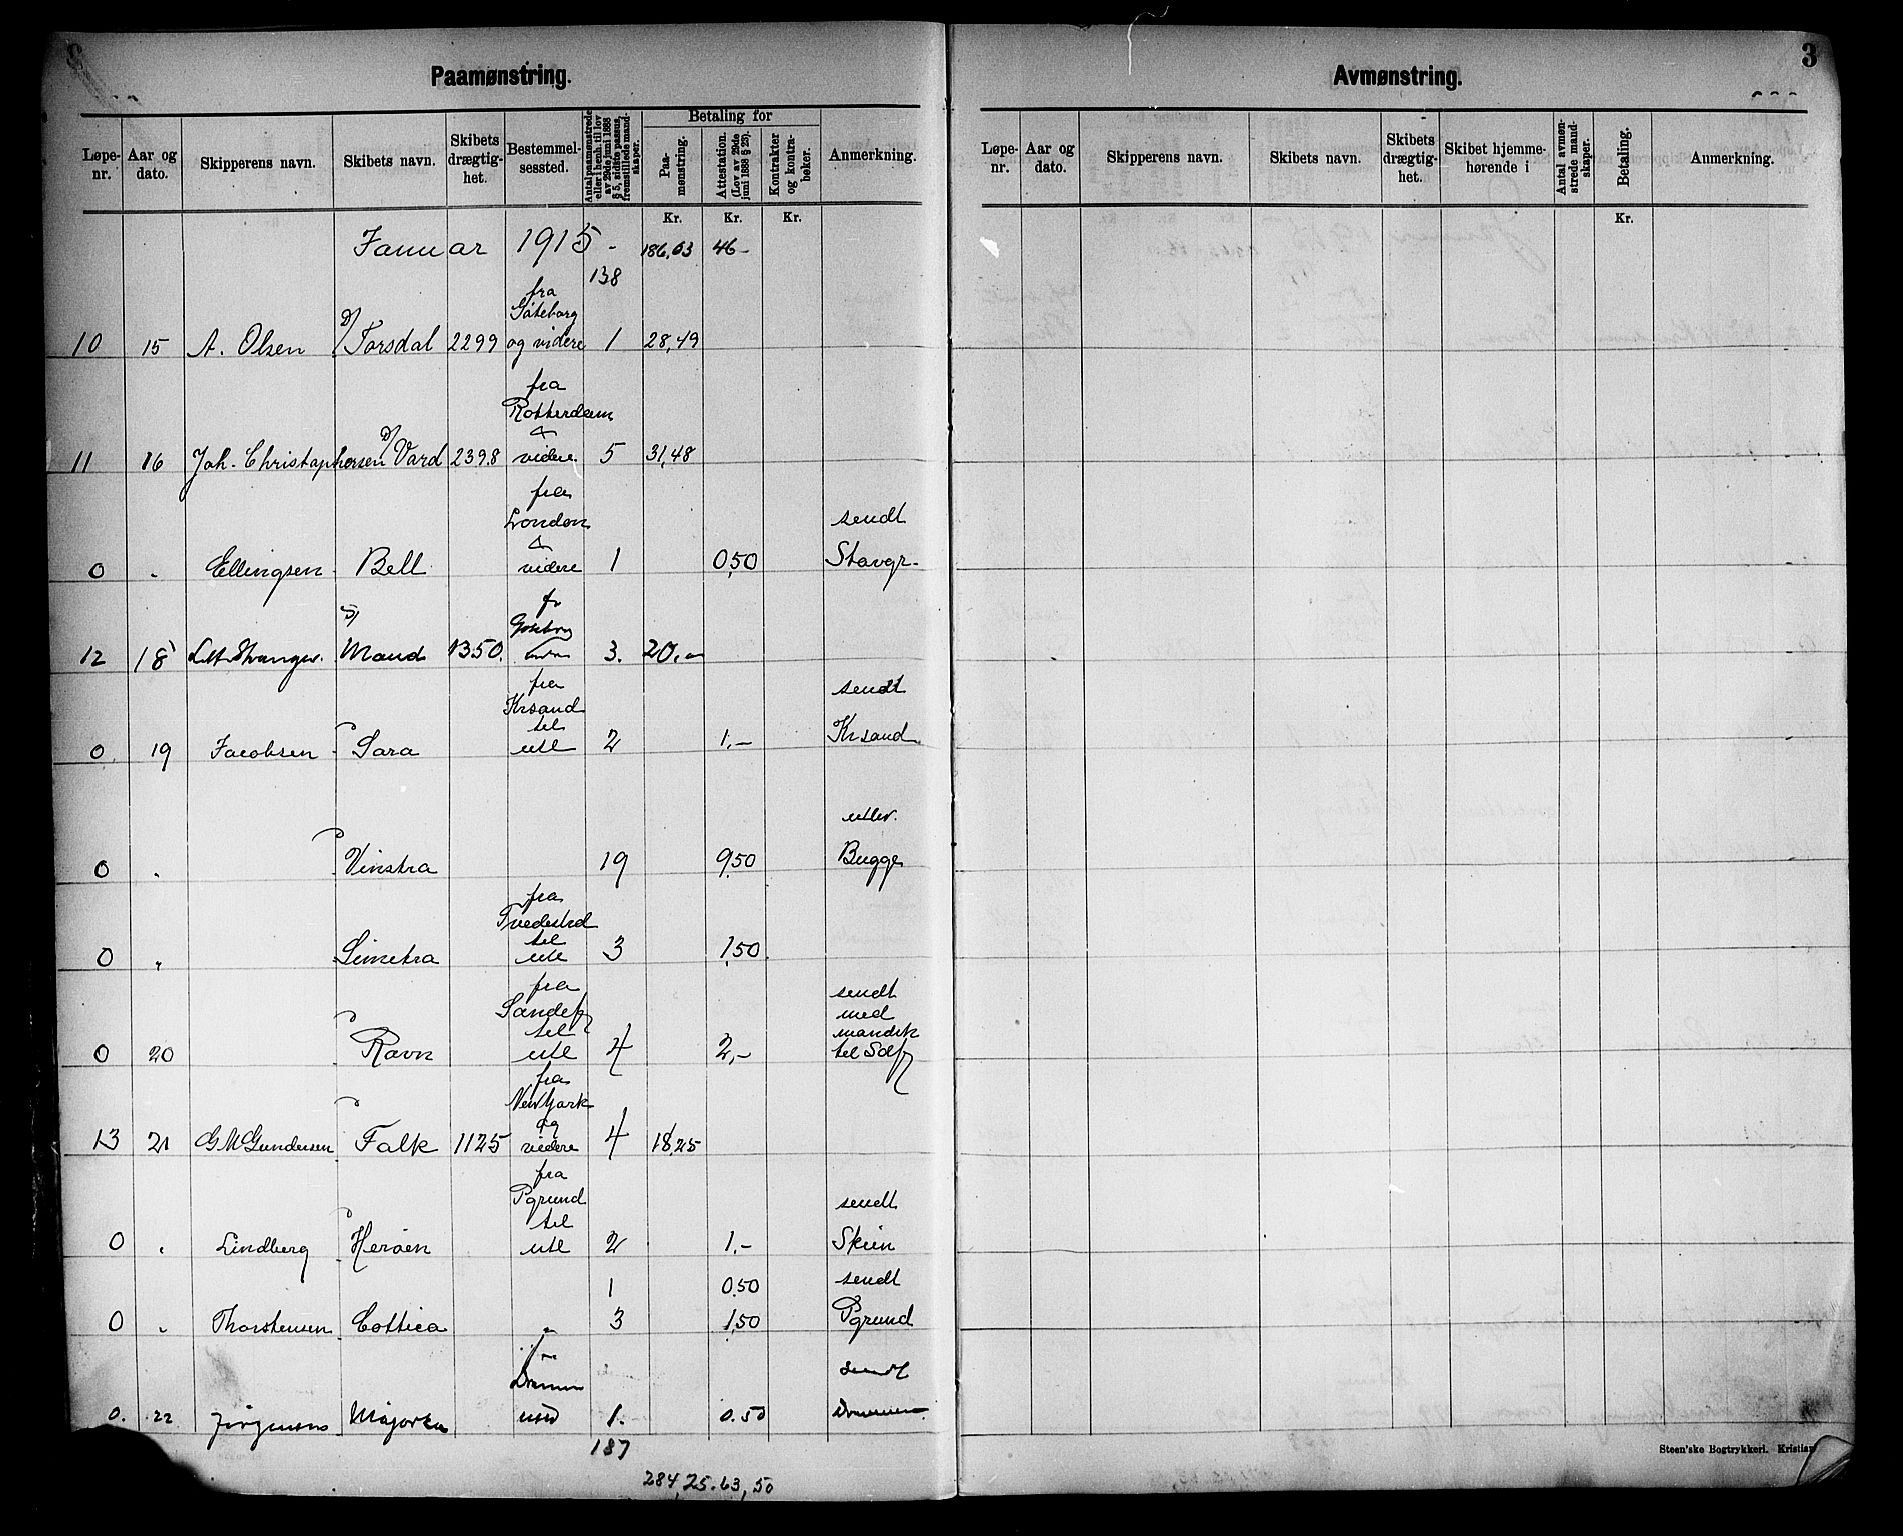 3
Paamønstring.
Løpe-nr. Aar og dato. Skipperens navn. Skibets navn. Skibets drægtig-het. Bestemmel-sessted. Antal paamønstrede eller i henh. til lov av 29de juni 1888 § 5, sidste passus, fremstillede mand-skaper. Betaling for Paa-mønstring. Attestation. (Lov av 29de juni 1888 § 23). Kontrakter og kontra-bøker. Anmerkning.
Kr. Kr. Kr.
Januar 1915 - 138 186,03 46-
10 15 A. Olsen D/ Torsdal 2299 fra Göteborg og videre 1 28,49
11 16 Joh. Christophersen D/ Vard 2398 fra Rotterdam & videre 5 31,48
0 " Ellingsen Bell fra London & videre 1 0,50 sendt Stavgr.
12 18 Maud 1350. 3. 20,-
0 19 Jacobsen Sara fra Krsand til utl 2 1,- sendt Krsand
0 " Vinstra 19 9,50 utlev. Bugge
0 " Simetra fra Tvedestrd til utl 3 1,50
0 20 Ravn fra Sandefj til utl 4 2,- sendt med mandsk til Sdfj
13 21 G M Gundersen Falk 1125 fra New York og videre 4 18,25
0 " Lindberg Herøen fra Pgrund til utl 2 1.- sendt Skien
1 0,50 sendt
0 " Thorstensen Cottica " 3 1,50 Pgrund
0. 22 Jørgensen Majorka fra Drammen 1. 0.50 sendt Drammen
187
284,25. 63,50
Avmønstring.
3
Løpe-nr. Aar og dato. Skipperens navn. Skibets navn. Skibets drægtig-het. Skibet hjemme-hørende i Antal avmøn-strede mand-skaper. Betaling. Anmerkning.
Kr.
Steen'ske Bogtrykkeri. Kristian